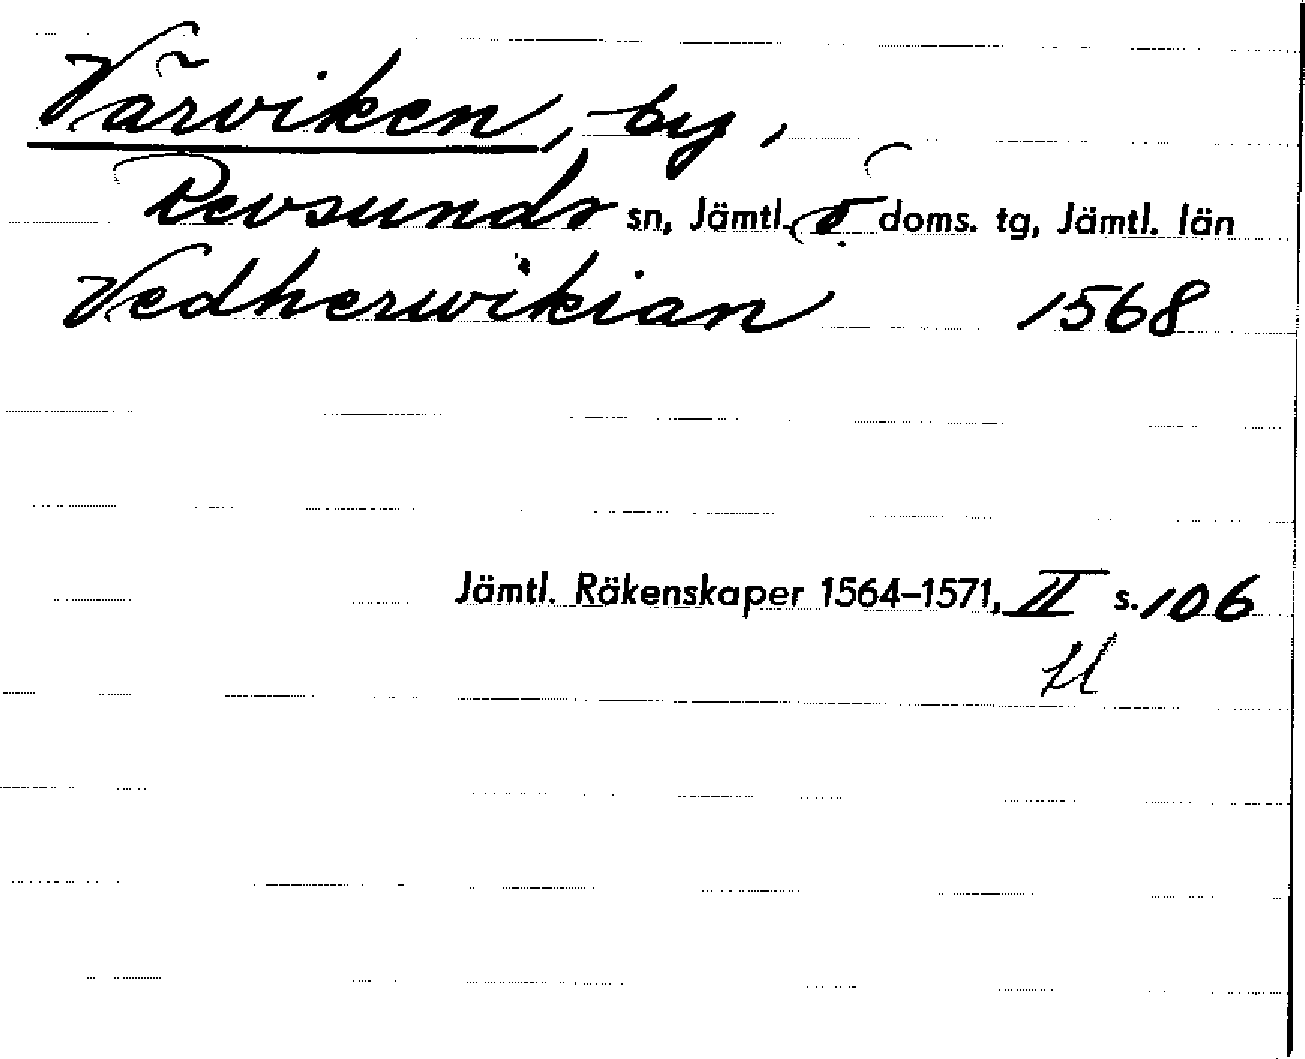 Värviken, by,
Revsunds sn, Jämtl. ö doms. tg, Jämtl. län
Vedherwikian 1568
Jämtl. Räkenskaper 1564–1571, II s. 106